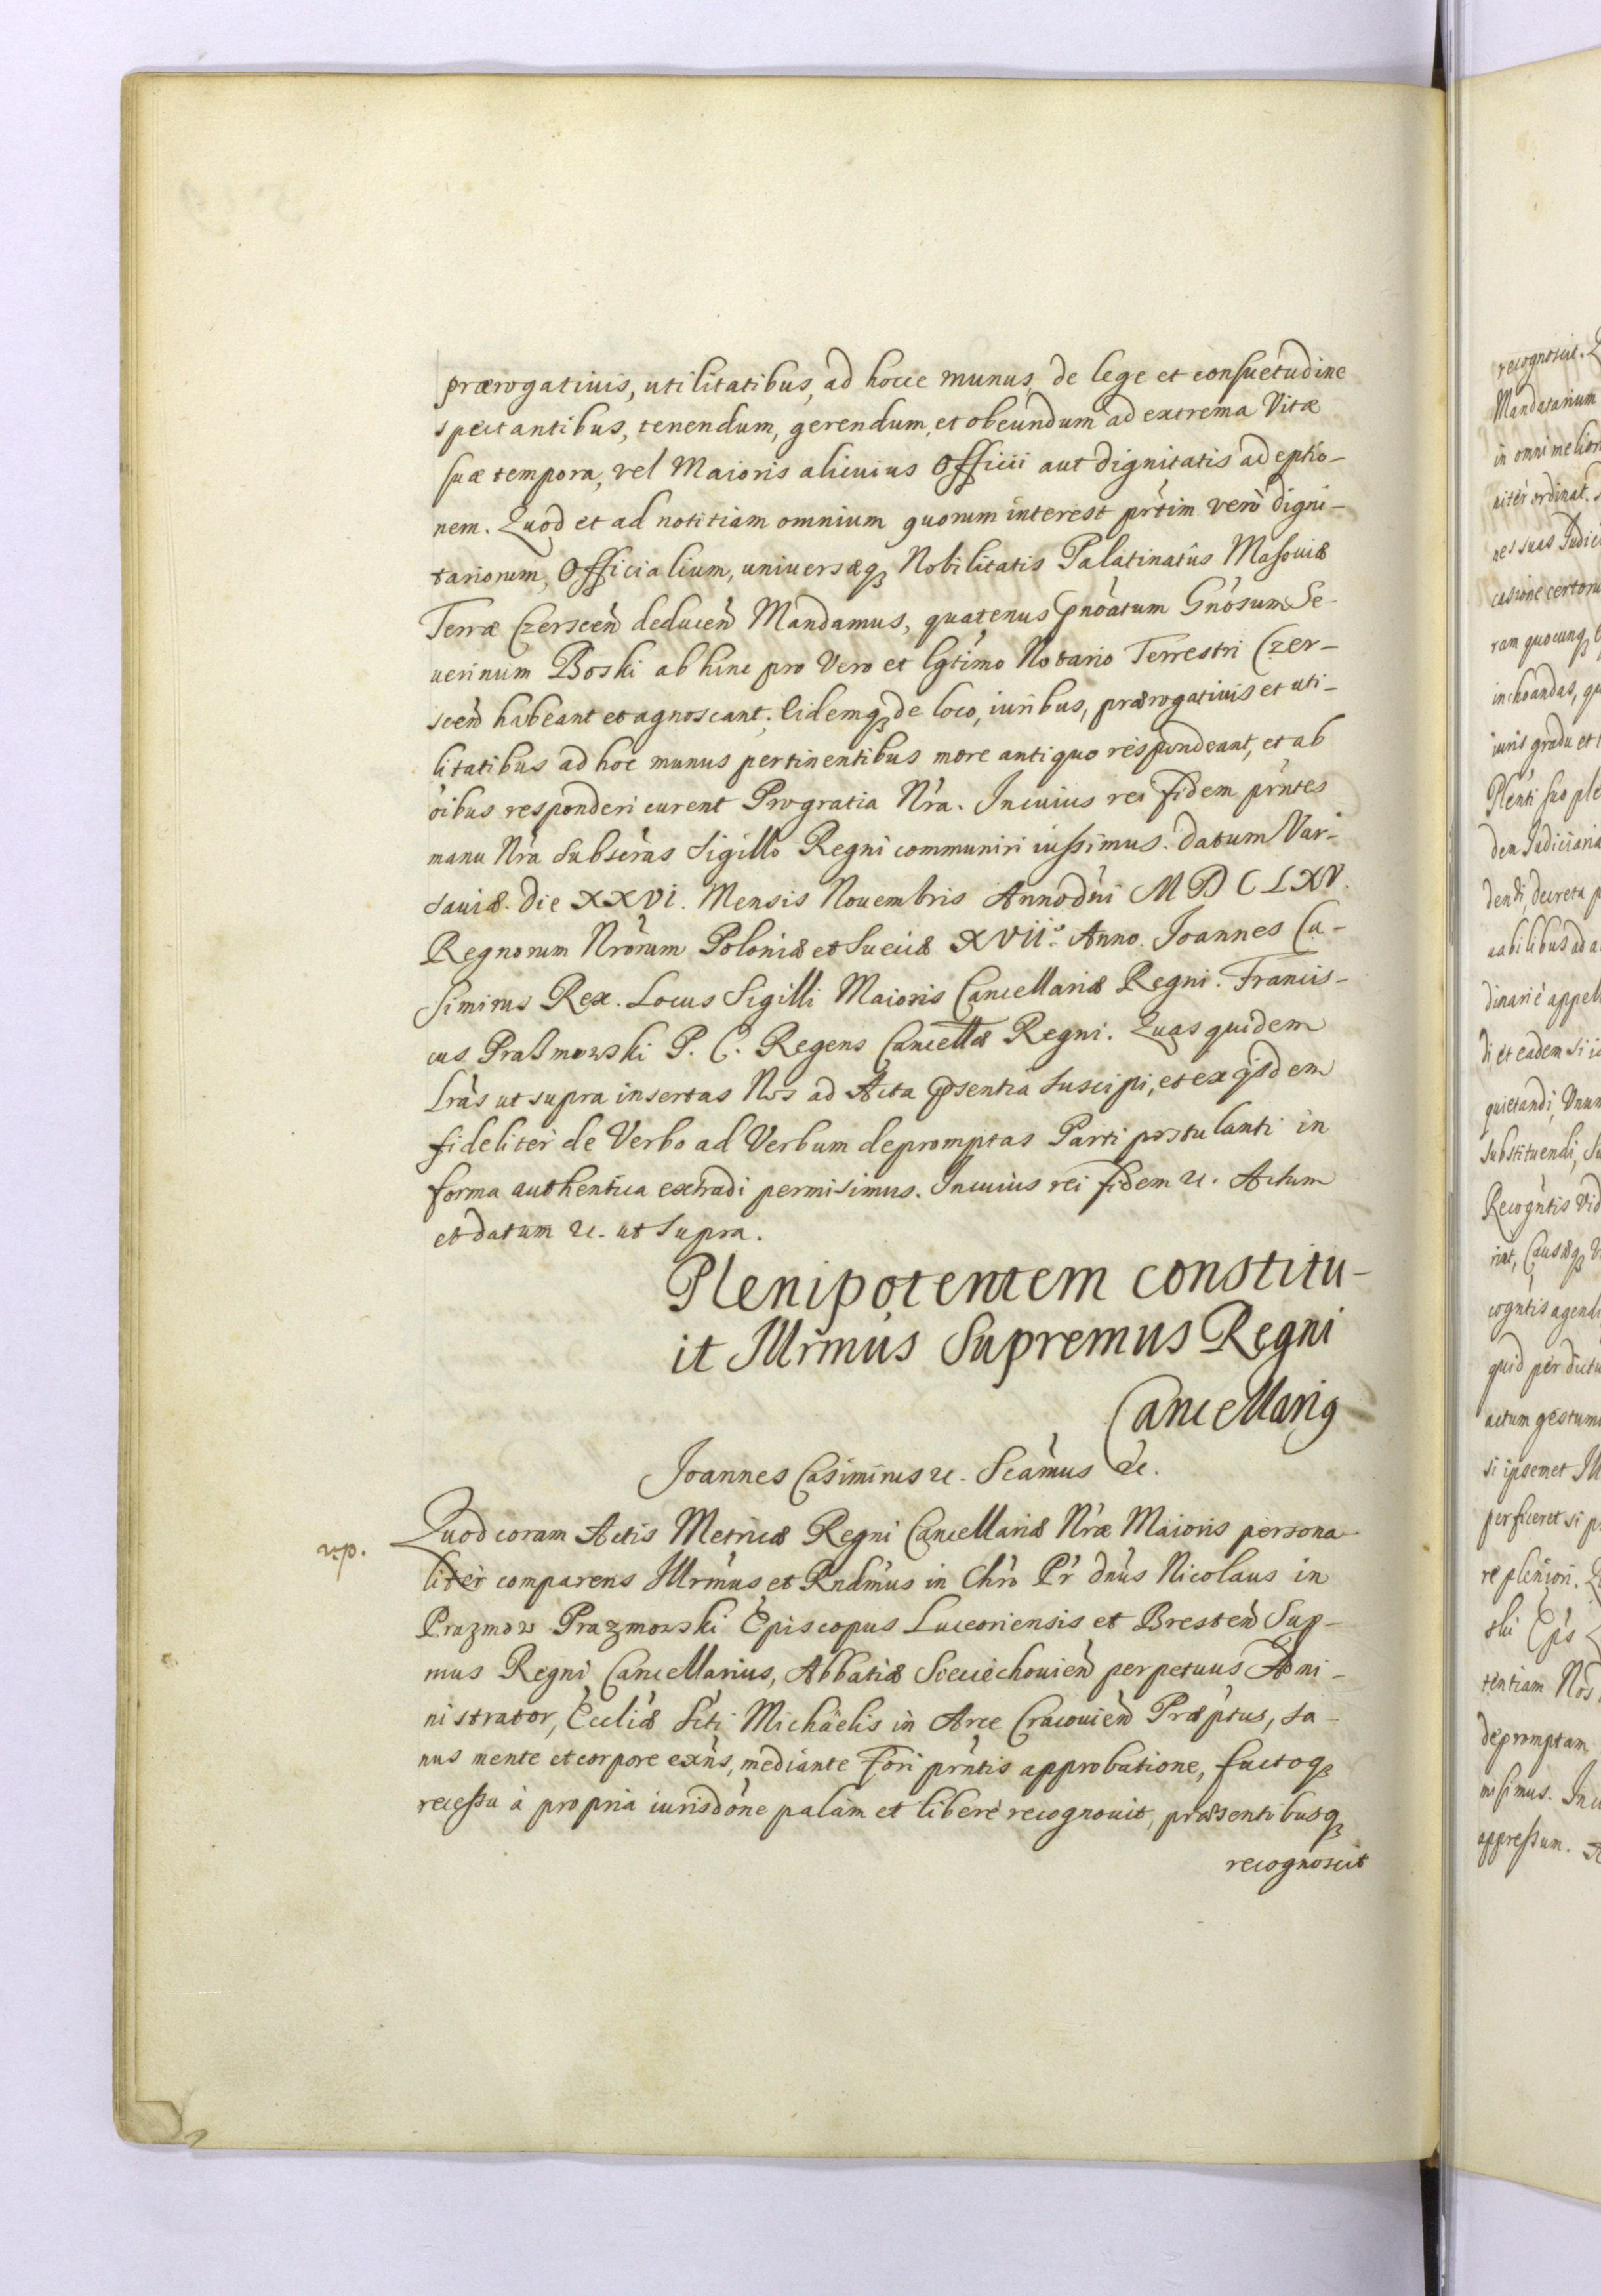 prærogativis, utilitatibus, ad hocce munus de lege et consuetudine
spectantibus, tenendum, gerendum, et obeundum ad extrema Vitæ
suæ tempora, vel Maioris alicuius Officii aut dignitatis adeptio-
nem. Quod et ad notitiam omnium quorum interest prtim verò digni-
tariorum, Officialium, universæq3 Nobilitatis Palatinatûs Masoviæ
Terræ Czerscen deducen Mandamus, quatenus pnoatum Gnosum Se-
uerinum Boski abhinc pro Vero et lgtimo Notario Terrestri Czer-
scen habeant et agnoscant; Eidemq3 de loco, iuribus, prærogativis et uti-
litatibus ad hoc munus pertinentibus more antiquo respondeant, et ab
oibus responderi curent Pro gratia Nra. In cuius rei fidem prntes
manu Nra Subscras Sigillo Regni communiri iussimus. Datum Var-
saviæ. Die XXVI. Mensis Novembris Anno dni MDCLXV.
Regnorum Nrorum Poloniæ et Sueciæ XVII.º Anno. Joannes Ca-
simirus Rex. Locus Sigilli Maioris Cancellariæ Regni. Francis-
cus Prasmowski P. C. Regens Cancellæ Regni. Quas quidem
Lras ut supra insertas Nos ad Acta psentia suscipi, et ex ijsdem
fideliter de Verbo ad Verbum depromptas Parti postulanti in
forma authentica extradi permisimus. In cuius rei fidem &. Actum
et datum &. ut supra.
Plenipotentem constitu-
it Illrmus Supremus Regni
Cancellari9
Joannes Casimirus &. Scamus &.
rp.
Quod coram Actis Metricæ Regni Cancellariæ Nræ Maioris persona-
liter comparens Illrmus et Rndmus in Chro Pr dnus Nicolaus in
Prazmow Prazmowski Episcopus Luceoriensis et Bresten Sup-
mus Regni Cancellarius, Abbatiæ Sieciechovien perpetuus Admi-
nistrator, Eccliæ Scti Michäelis in Arce Cracovien Præptus, sa-
nus mente et corpore exns, mediante Fori prntis approbatione, factoq3
recessu à propria iurisdone palam et liberè recognovit, præsentibusq3
recognoscit